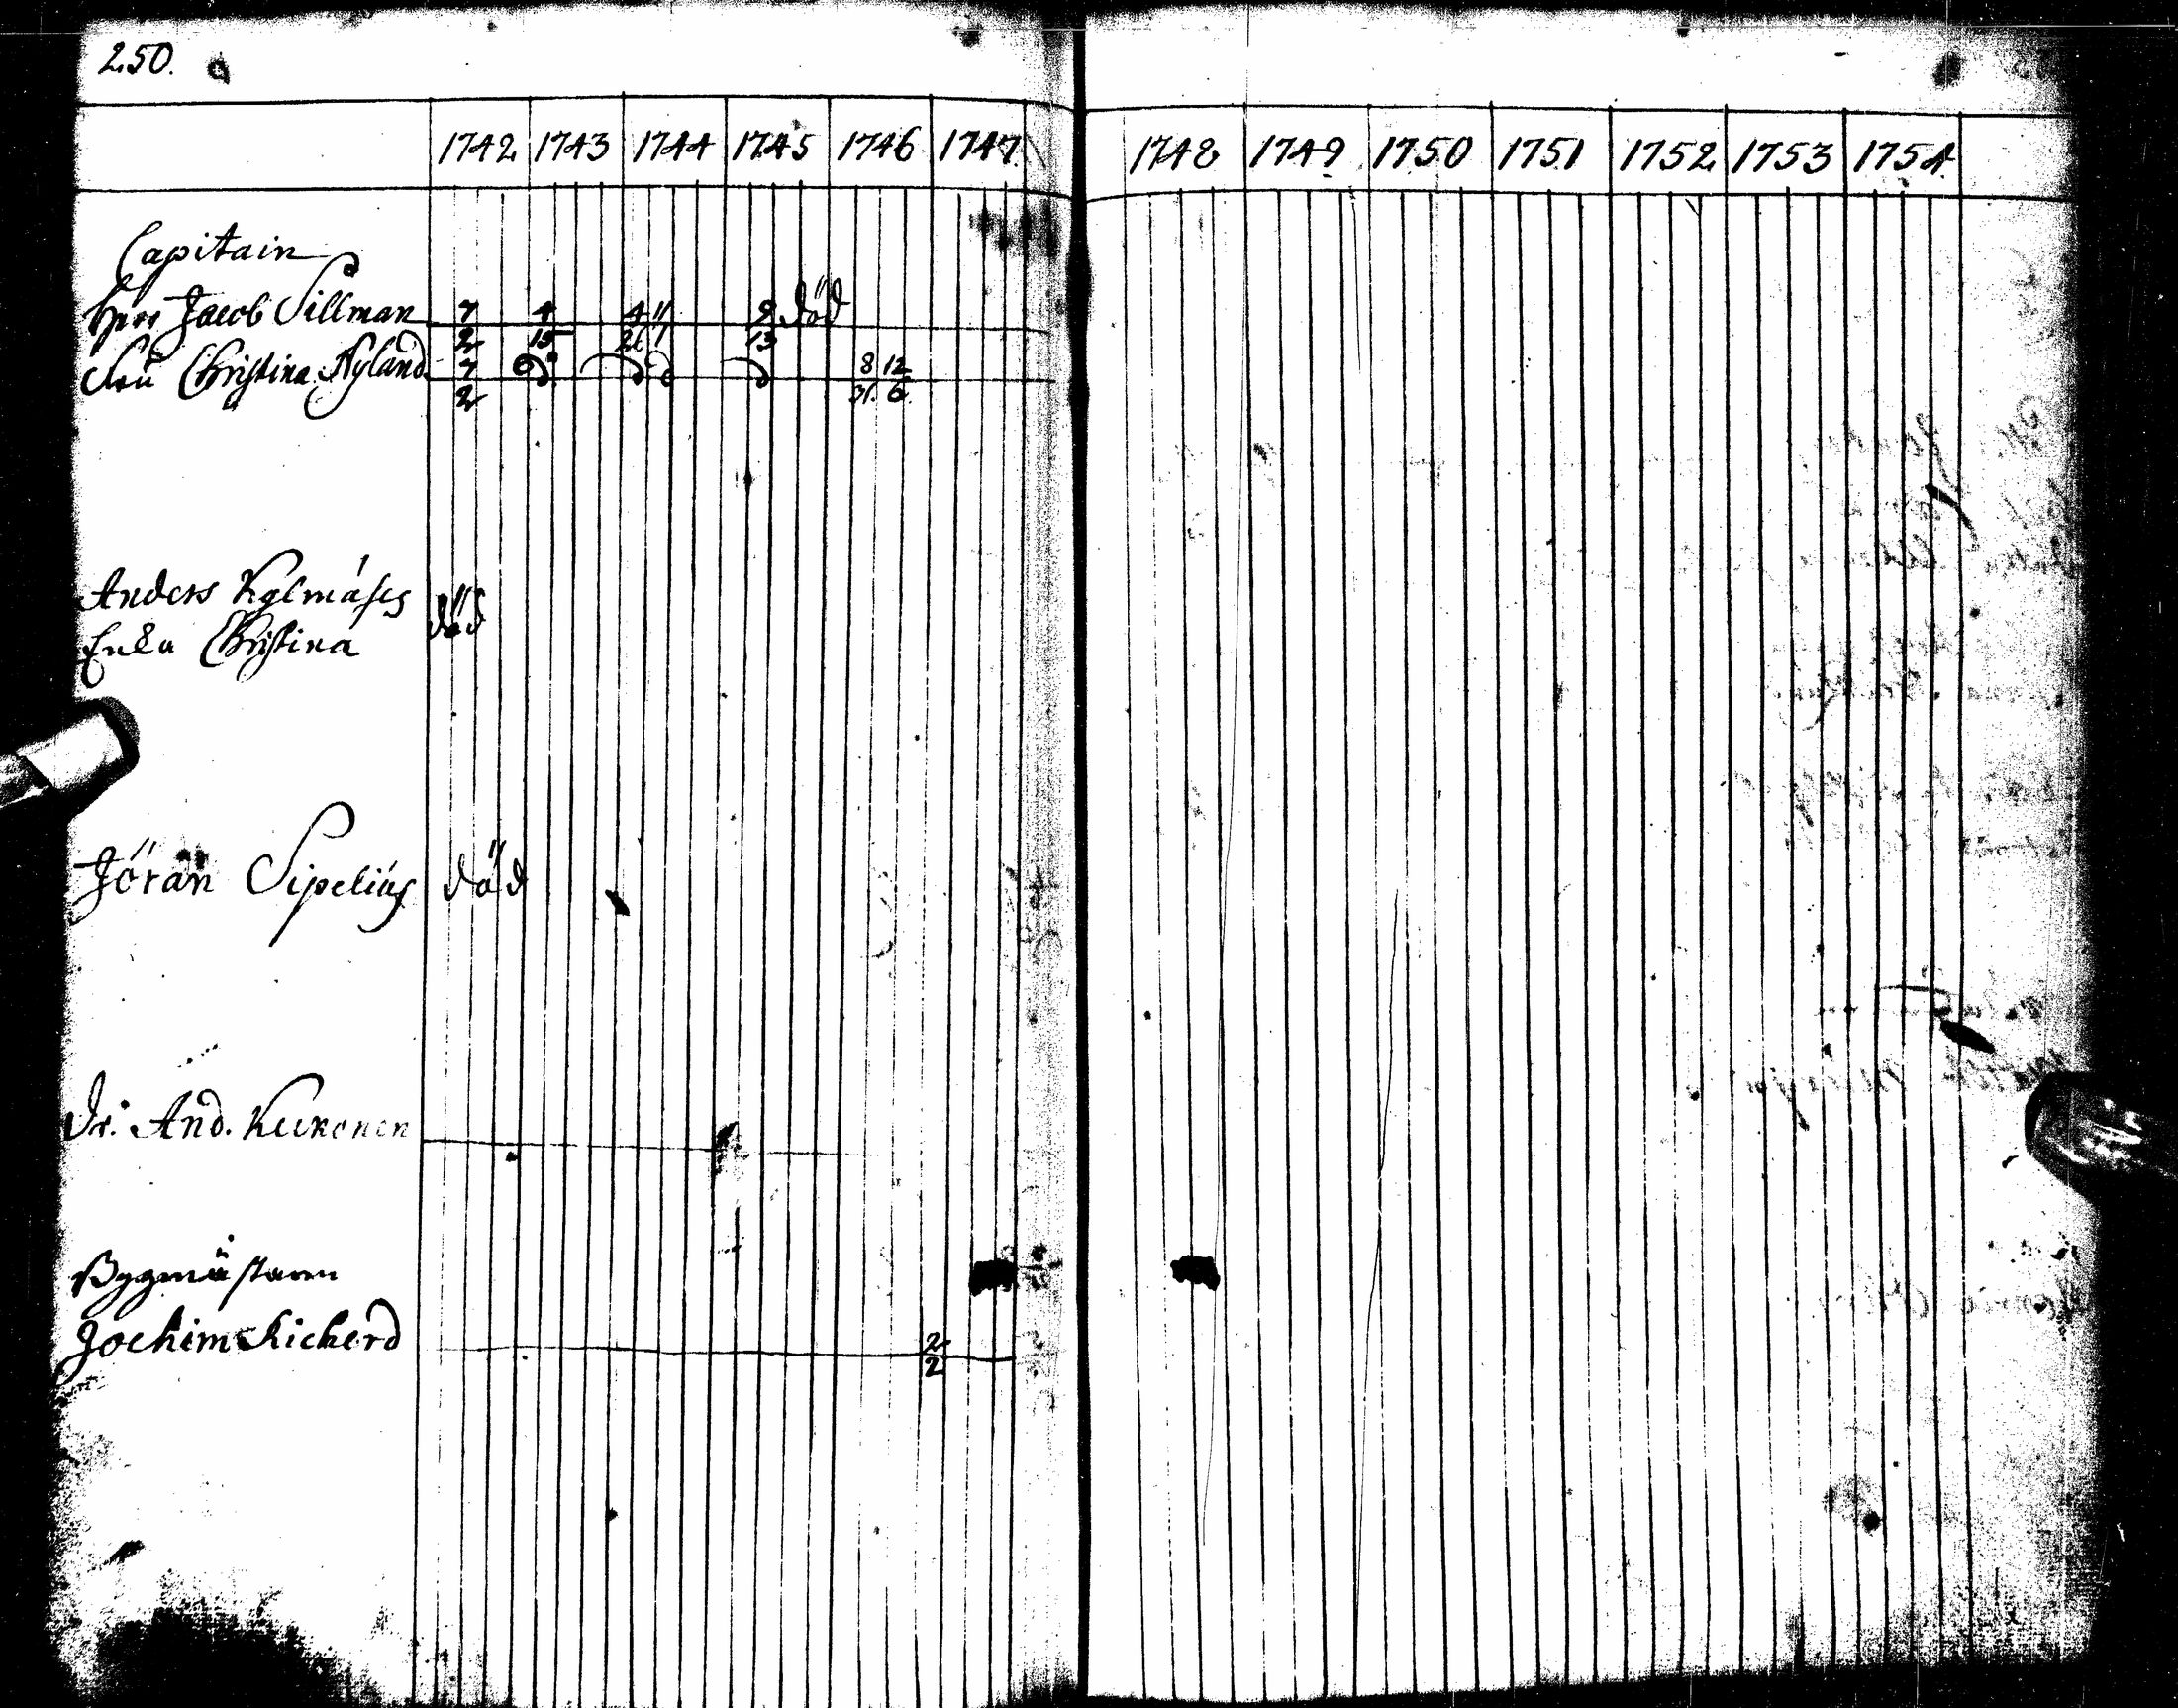 250.
1742 1743 1744 1745 1746 1747 1748 1749 1750 1751 1752 1753 1754
Capitain
Herr Jacob Sillman 7/2 4/15 4/21 11/1 8/13 död
Fru Christina Nyland 7/2 8/31. 12/6.
Anders Kylmäses död
Enka Christina
Jöran Sipelius död
Dr. And. Kukonen
Byggmästaren
Jochim Richerd 2/2